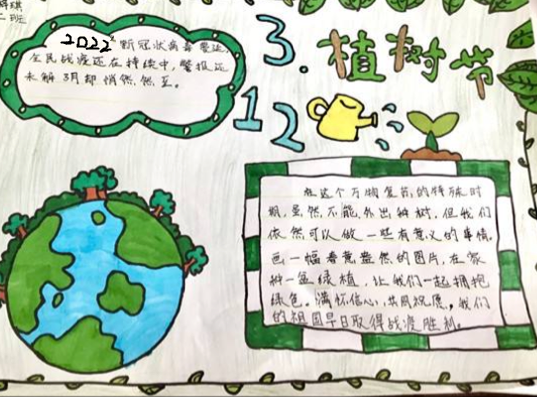 琪
二班
2022 新冠状病毒蔓延,
全民战疫还在持续中,警报还
未解3月却悄然、然至。
3.12
植树节
在这个万物复苏的特殊时
期,虽然不能外出种树,但我们
依然可以做一些有意义的事情,
画一幅春意盎然的图片,在家
种一盆绿植,让我们一起拥抱
绿色。满怀信心,共同祝愿,我们
的祖国早日取得战疫胜利。